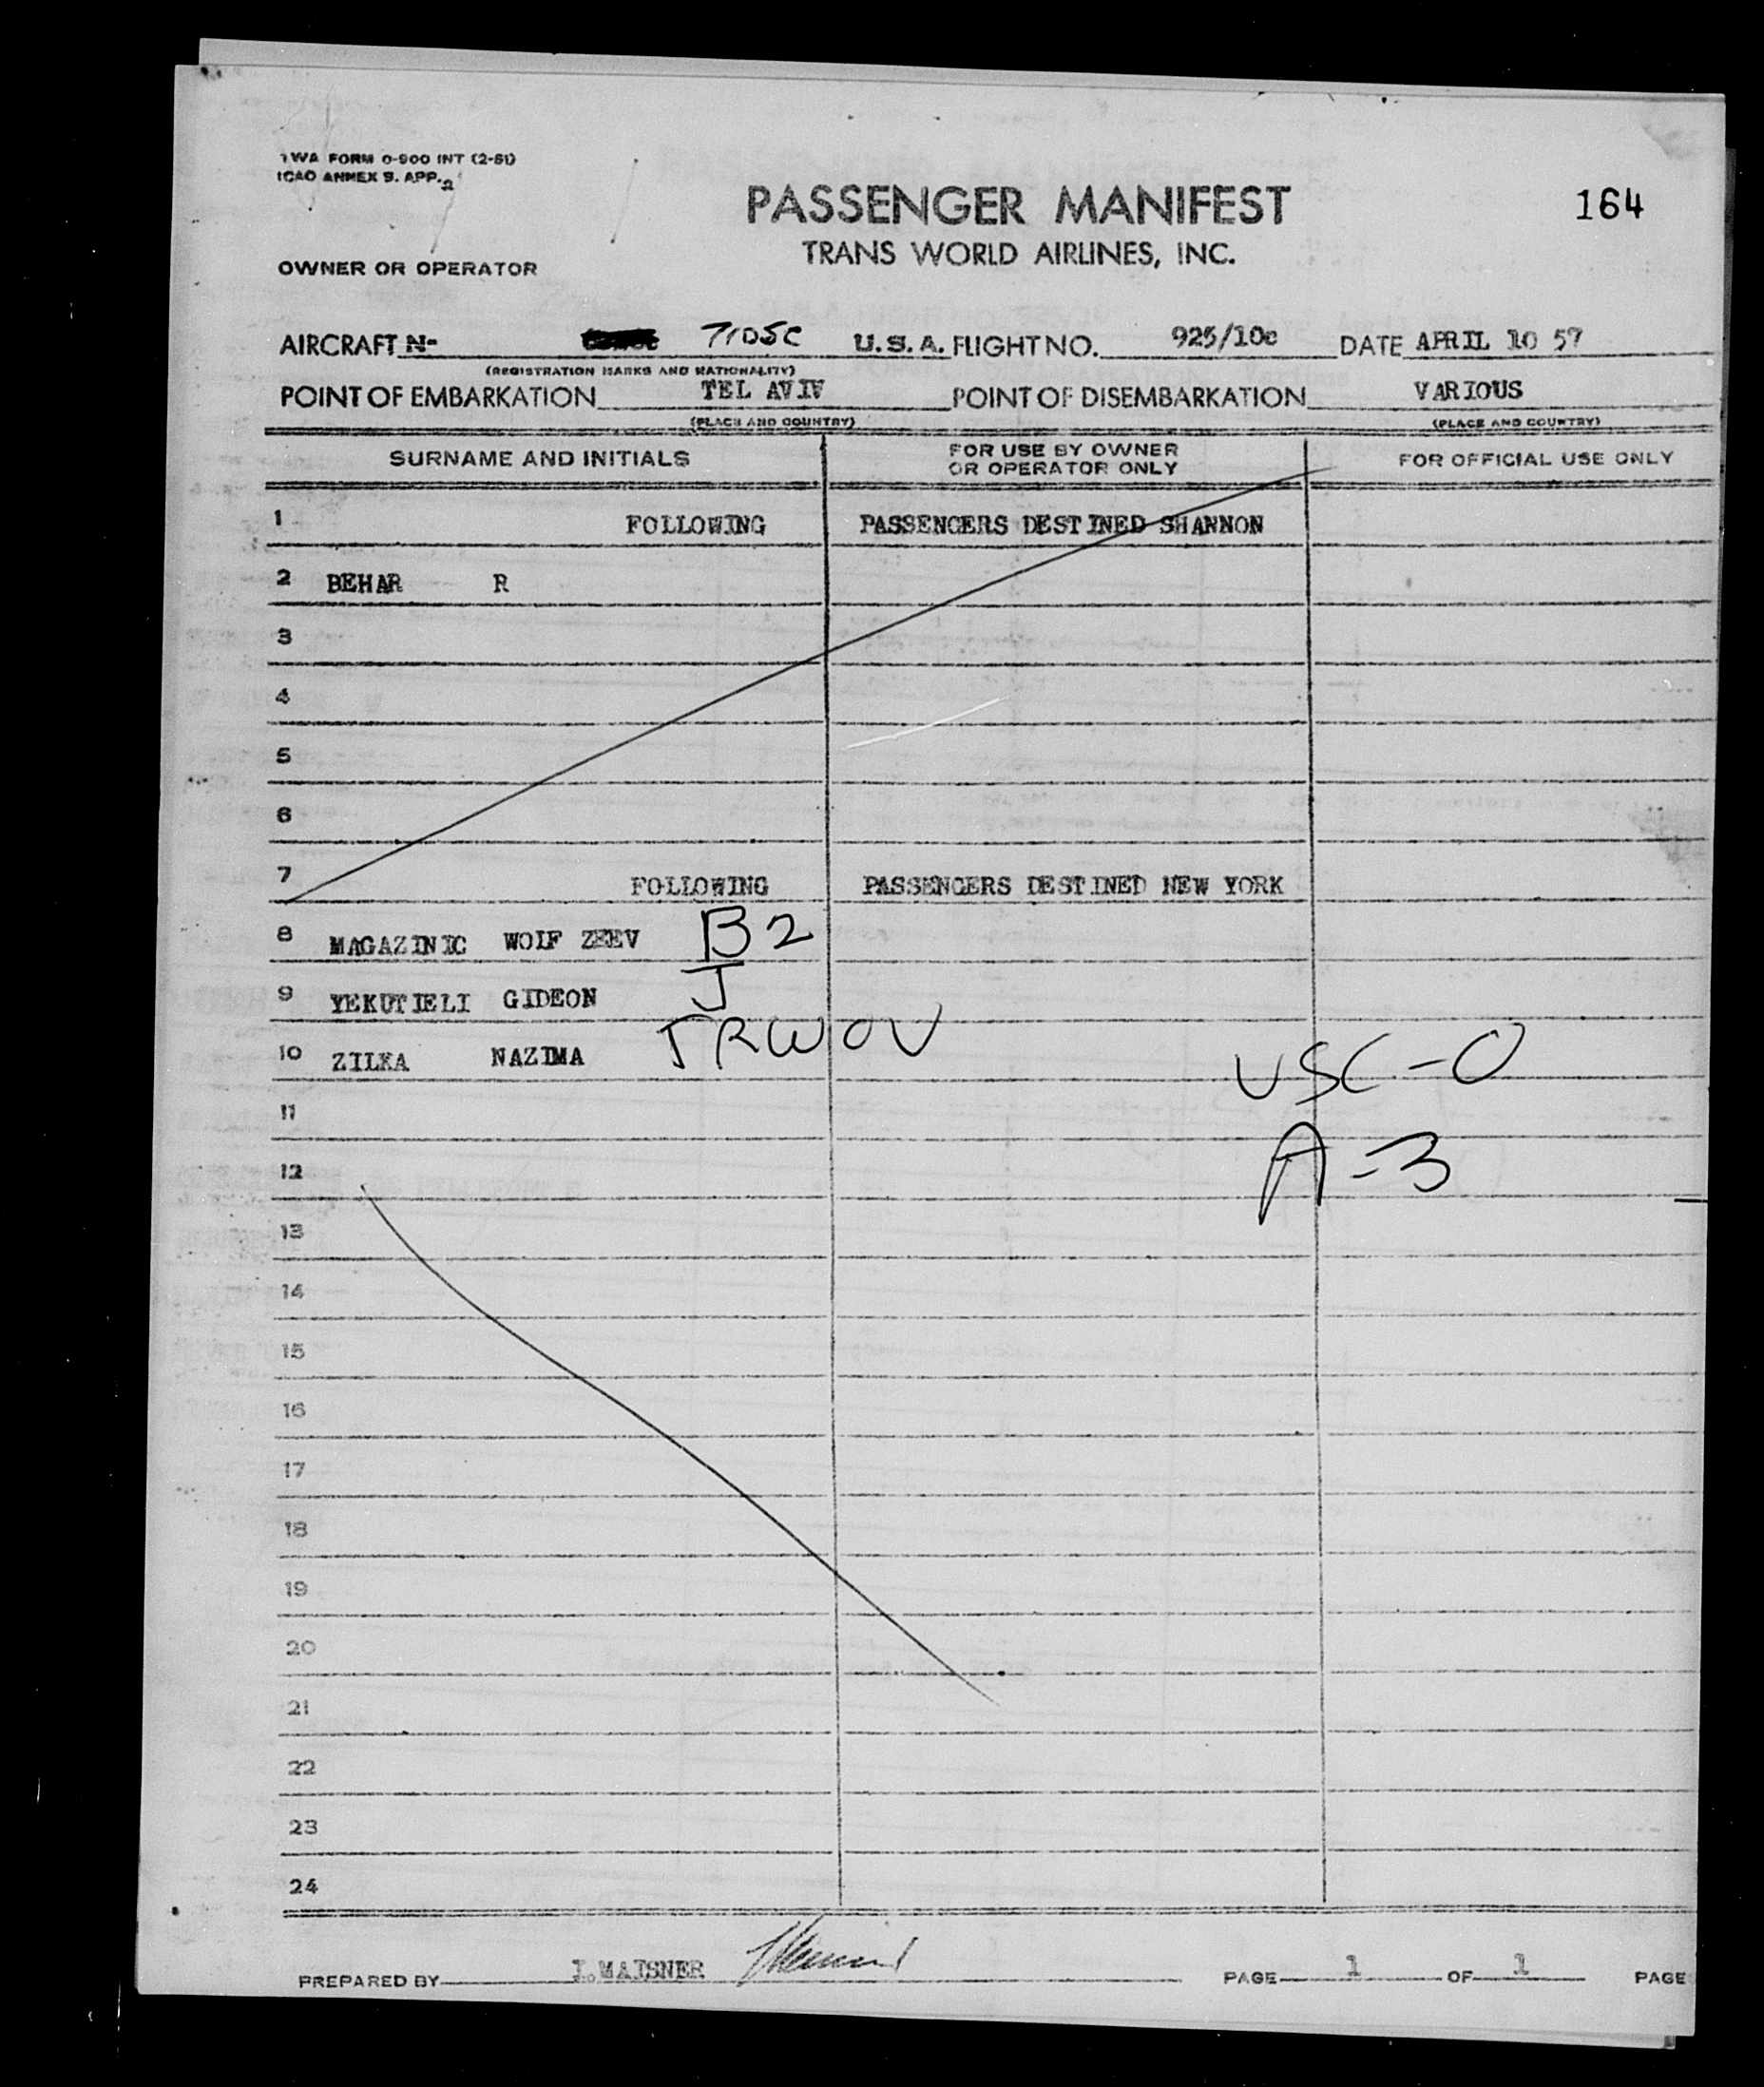 TWA FORM 0-900 INT (2-51)
ICAO ANNEX 9. APP. 2
PASSENGER MANIFEST
164
TRANS WORLD AIRLINES, INC.
OWNER OR OPERATOR
AIRCRAFT N- 7105C U.S.A. FLIGHT NO. 925/10c DATE APRIL 10 57
(REGISTRATION MARKS AND NATIONALITY)
POINT OF EMBARKATION TEL AVIV POINT OF DISEMBARKATION VARIOUS
(PLACE AND COUNTRY) (PLACE AND COUNTRY)
SURNAME AND INITIALS FOR USE BY OWNER OR OPERATOR ONLY FOR OFFICIAL USE ONLY
1 FOLLOWING PASSENGERS DESTINED SHANNON
2 BEHAR R
3
4
5
6
7 FOLLOWING PASSENGERS DESTINED NEW YORK
8 MAGAZINIC WOLF ZEEV B2
9 YEKUTIELI GIDEON J
10 ZILKA NAZIMA TRWOV
USC-0
11
A-3
12
13
14
15
16
17
18
19
20
21
22
23
24
PREPARED BY I.MAISNER PAGE 1 OF 1 PAGE